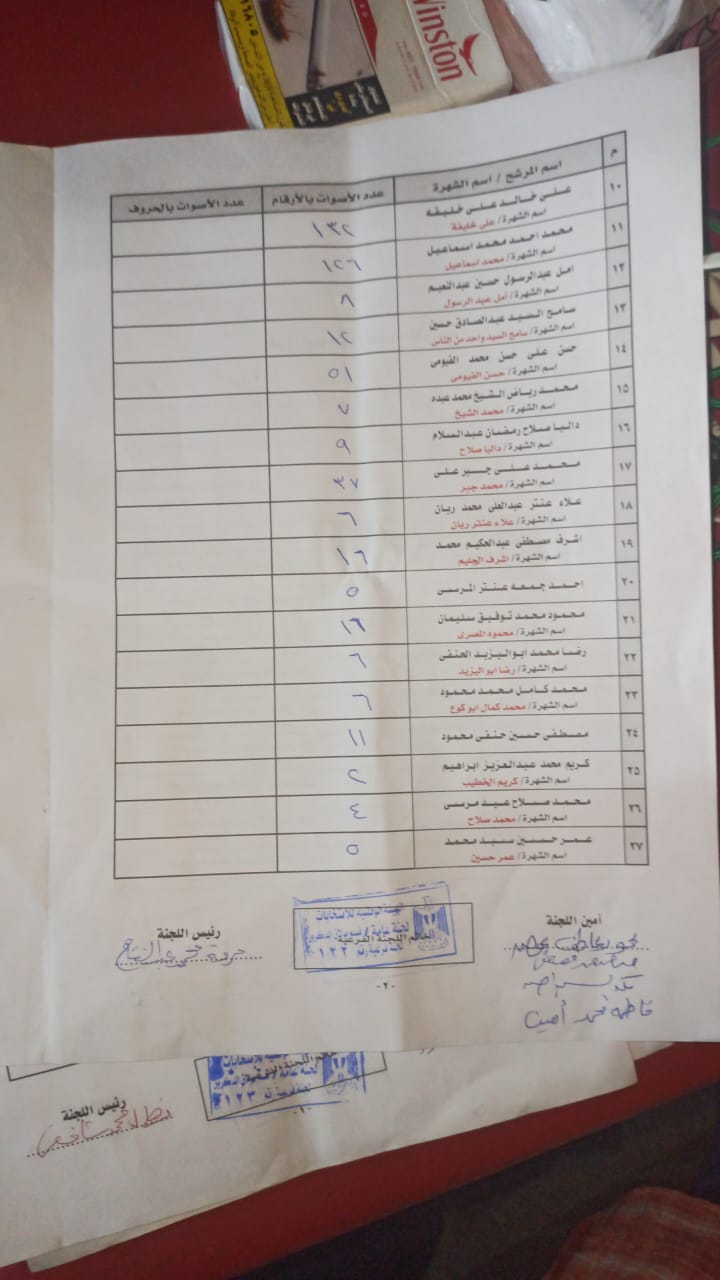 Winston
م
اسم المرشح / اسم الشهرة
عدد الأصوات بالأرقام
عدد الأصوات بالحروف
١٠
على خالد على خليفه
اسم الشهرة/ على خليفة
١٣٢
١١
محمد احمد محمد اسماعيل
اسم الشهرة/ محمد اسماعيل
١٢٦
١٢
امل عبدالرسول حسين عبدالنعيم
اسم الشهرة/ أمل عبد الرسول
٨
١٣
سامح السيد عبدالصادق حسين
اسم الشهرة/ سامح السيد واحد من الناس
١٢
١٤
حسن على حسن محمد الفيومى
اسم الشهرة/ حسن الفيومى
٥١
١٥
محمد رياض الشيخ محمد عبده
اسم الشهرة/ محمد الشيخ
٧
١٦
داليا صلاح رمضان عبدالسلام
اسم الشهرة/ داليا صلاح
٩
١٧
محمد على جبر على
اسم الشهرة/ محمد جبر
٣٧
١٨
علاء عنتر عبدالعلى محمد ريان
اسم الشهرة/ علاء عنتر ريان
٦
١٩
اشرف مصطفى عبدالحكيم محمد
اسم الشهرة/ اشرف الجليم
١٦
٢٠
احمد جمعه عنتر المرسى
٥
٢١
محمود محمد توفيق سليمان
اسم الشهرة/ محمود المصرى
٢٢
رضا محمد ابواليزيد الحنفى
اسم الشهرة/ رضا ابو اليزيد
٦
٢٣
محمد كامل محمد محمود
اسم الشهرة/ محمد كمال ابو كوع
٦
٢٤
مصطفى حسين حنفى محمود
١١
٢٥
كريم محمد عبدالعزيز ابراهيم
اسم الشهرة/ كريم الخطيب
٢
٢٦
محمد صلاح عبد مرسى
اسم الشهرة/ محمد صلاح
٤
٢٧
عمر حسين سيد محمد
اسم الشهرة/ عمر حسين
٥
أمين اللجنة
رئيس اللجنة
الهيئة الوطنية للانتخابات
خاتم اللجنة الفرعية
لجنة فرعية رقم ١٢٣
فاطمة محمد أمين
-٢-
رئيس اللجنة
-١-